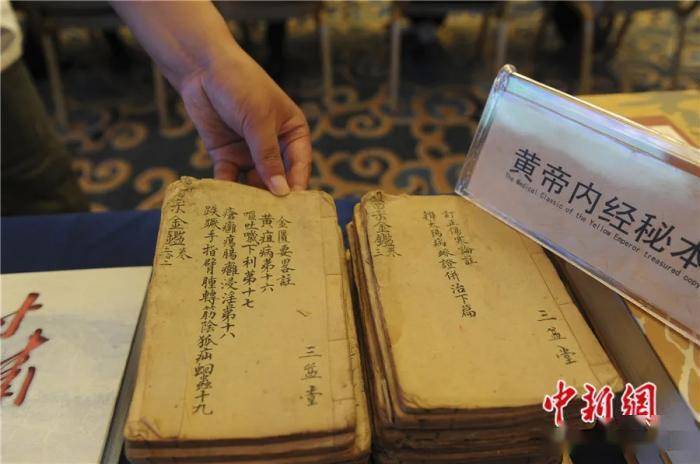 金匱要畧註
黃疸病第十六
嘔吐噦下利第十七
瘡癰瘍腸癰浸淫第十八
趺蹶手指臂腫轉筋陰狐疝蚘蟲十九
三益堂
宗金鑑
訂正傷寒論註
辨太陽病脉證併治下篇
三益堂
宗金鑑
黄帝内经秘本
The Medical Classic of the Yellow Emperor treasured copy
中新網